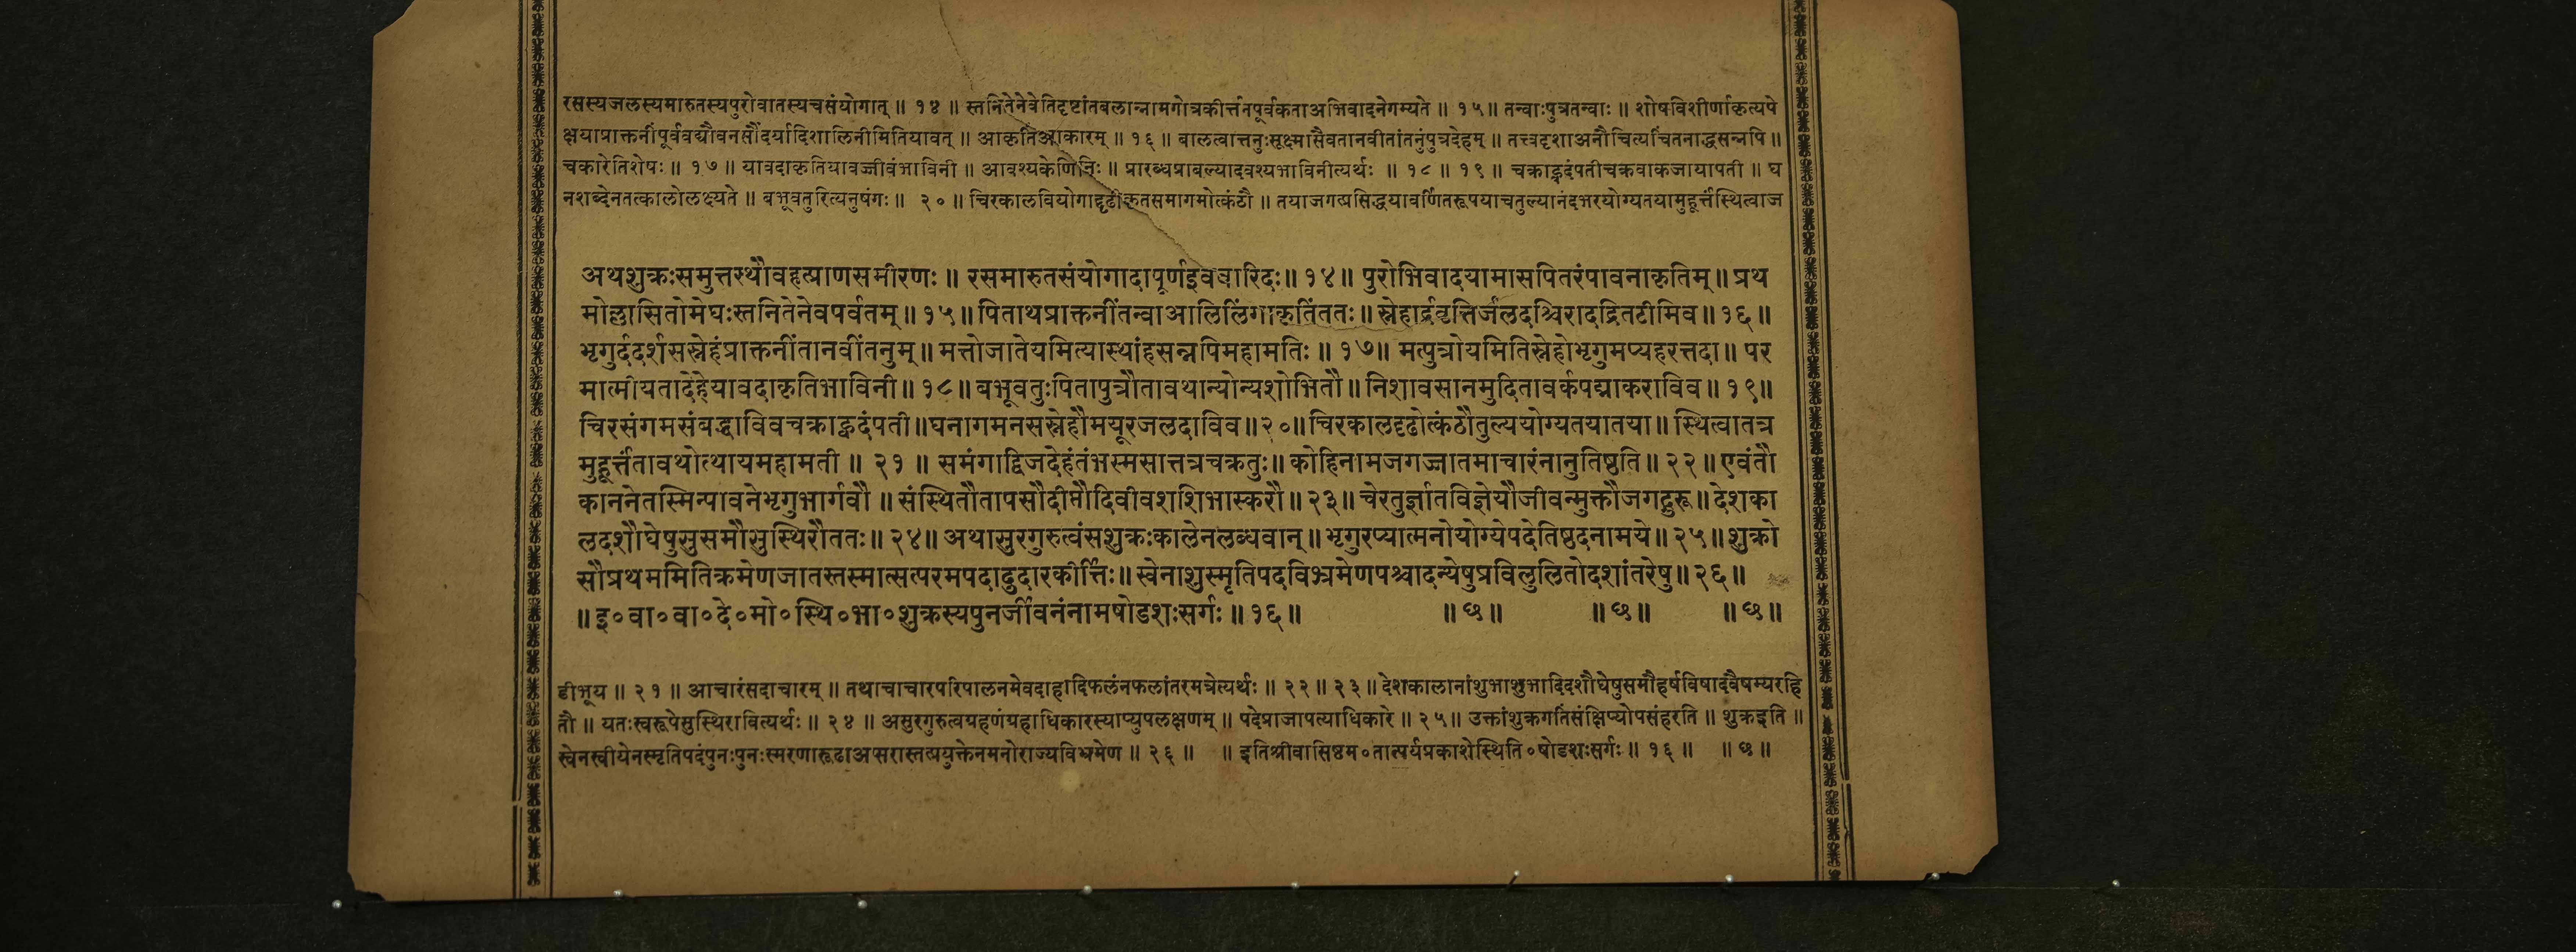 रसस्यजलस्यमारुतस्यपुरोवातस्यचसंयोगात् ॥ १४ ॥ स्तनितेनेवेतिदृष्टांतबलान्नामगोत्रकीर्त्तनपूर्वकताअभिवादनेगम्यते ॥ १५॥ तन्वाःपुत्रतन्वाः ॥ शोषविशीर्णाकृत्यपे
क्षयाप्राक्तनींपूर्ववद्यौवनसौंदर्यादिशालिनीमितियावत् ॥ आकृतिंआकारम् ॥ १६ ॥ बालत्वात्तनुःसूक्ष्मासैवतानवीतांतनुंपुत्रदेहम् ॥ तत्त्वदृशाअनौचित्यचिंतनाद्धसन्नपि ॥
चकारेतिशेषः ॥ १७ ॥ यावदाकृतियावज्जीवंभाविनी ॥ आवश्यकेणिनिः ॥ प्रारब्धप्राबल्यादवश्यभाविनीत्यर्थः ॥ १८ ॥ १९ ॥ चक्राह्वदंपतीचक्रवाकजायापती ॥ घ
नशब्देनतत्कालोलक्ष्यते ॥ बभूवतुरित्यनुषंगः ॥ २० ॥ चिरकालवियोगाद्दृढीकृतसमागमोत्कंठौ ॥ तयाजगत्प्रसिद्धयावर्णितरूपयाचतुल्यानंदभरयोग्यतयामुहूर्त्तंस्थित्वाज
अथशुक्रःसमुत्तस्थौवहत्प्राणसमीरणः ॥ रसमारुतसंयोगादापूर्णइववारिदः ॥ १४ ॥ पुरोभिवादयामासपितरंपावनाकृतिम् ॥ प्रथ
मोल्लासितोमेघःस्तनितेनेवपर्वतम् ॥ १५ ॥ पिताथप्राक्तनींतन्वाआलिलिंगाकृतिंततः ॥ स्नेहार्द्रवृत्तिर्जलदश्चिरादद्रितटीमिव ॥ १६ ॥
भृगुर्ददर्शसस्नेहंप्राक्तनींतानवींतनुम् ॥ मत्तोजातेयमित्यास्थांहसन्नपिमहामतिः ॥ १७ ॥ मत्पुत्रोयमितिस्नेहोभृगुमप्यहरत्तदा ॥ पर
मात्मीयतादेहेयावदाकृतिभाविनी ॥ १८ ॥ बभूवतुःपितापुत्रौतावथान्योन्यशोभितौ ॥ निशावसानमुदितावर्कपद्माकराविव ॥ १९ ॥
चिरसंगमसंबद्धाविवचक्राह्वदंपती ॥ घनागमनसस्नेहौमयूरजलदाविव ॥ २० ॥ चिरकालदृढोत्कंठौतुल्ययोग्यतयातया ॥ स्थित्वातत्र
मुहूर्त्तंतावथोत्थायमहामती ॥ २१ ॥ समंगाद्विजदेहंतंभस्मसात्तत्रचक्रतुः ॥ कोहिनामजगज्जातमाचारंनानुतिष्ठति ॥ २२ ॥ एवंतौ
काननेतस्मिन्पावनेभृगुभार्गवौ ॥ संस्थितौतापसौदीप्तौदिवीवशशिभास्करौ ॥ २३ ॥ चेरतुर्ज्ञातविज्ञेयौजीवन्मुक्तौजगद्गुरू ॥ देशका
लदशौघेषुसुसमौसुस्थिरौततः ॥ २४ ॥ अथासुरगुरुत्वंसशुक्रःकालेनलब्धवान् ॥ भृगुरप्यात्मनोयोग्येपदेतिष्ठदनामये ॥ २५ ॥ शुक्रो
सौप्रथममितिक्रमेणजातस्तस्मात्सत्परमपदादुदारकीर्त्तिः ॥ स्वेनाशुस्मृतिपदविभ्रमेणपश्चादन्येषुप्रविलुलितोदशांतरेषु ॥ २६ ॥
॥ इ०वा०वा०दे०मो०स्थि०भा०शुक्रस्यपुनर्जीवनंनामषोडशःसर्गः ॥ १६ ॥ ॥ छ ॥ ॥ छ ॥ ॥ छ ॥
डीभूय ॥ २१ ॥ आचारंसदाचारम् ॥ तथाचाचारपरिपालनमेवदाहादिफलंनफलांतरमत्रेत्यर्थः ॥ २२ ॥ २३ ॥ देशकालानांशुभाशुभादिदशौघेषुसमौहर्षविषादवैषम्यरहि
तौ ॥ यतःस्वरूपेसुस्थिरावित्यर्थः ॥ २४ ॥ असुरगुरुत्वग्रहणंग्रहाधिकारस्याप्युपलक्षणम् ॥ पदेप्राजापत्याधिकारे ॥ २५ ॥ उक्तांशुक्रगतिंसंक्षिप्योपसंहरति ॥ शुक्रइति ॥
स्वेनस्वीयेनस्मृतिपदंपुनःपुनःस्मरणारूढाअप्सरास्तत्प्रयुक्तेनमनोराज्यविभ्रमेण ॥ २६ ॥ ॥ इतिश्रीवासिष्ठम०तात्पर्यप्रकाशेस्थिति०षोडशःसर्गः ॥ १६ ॥ ॥ छ ॥